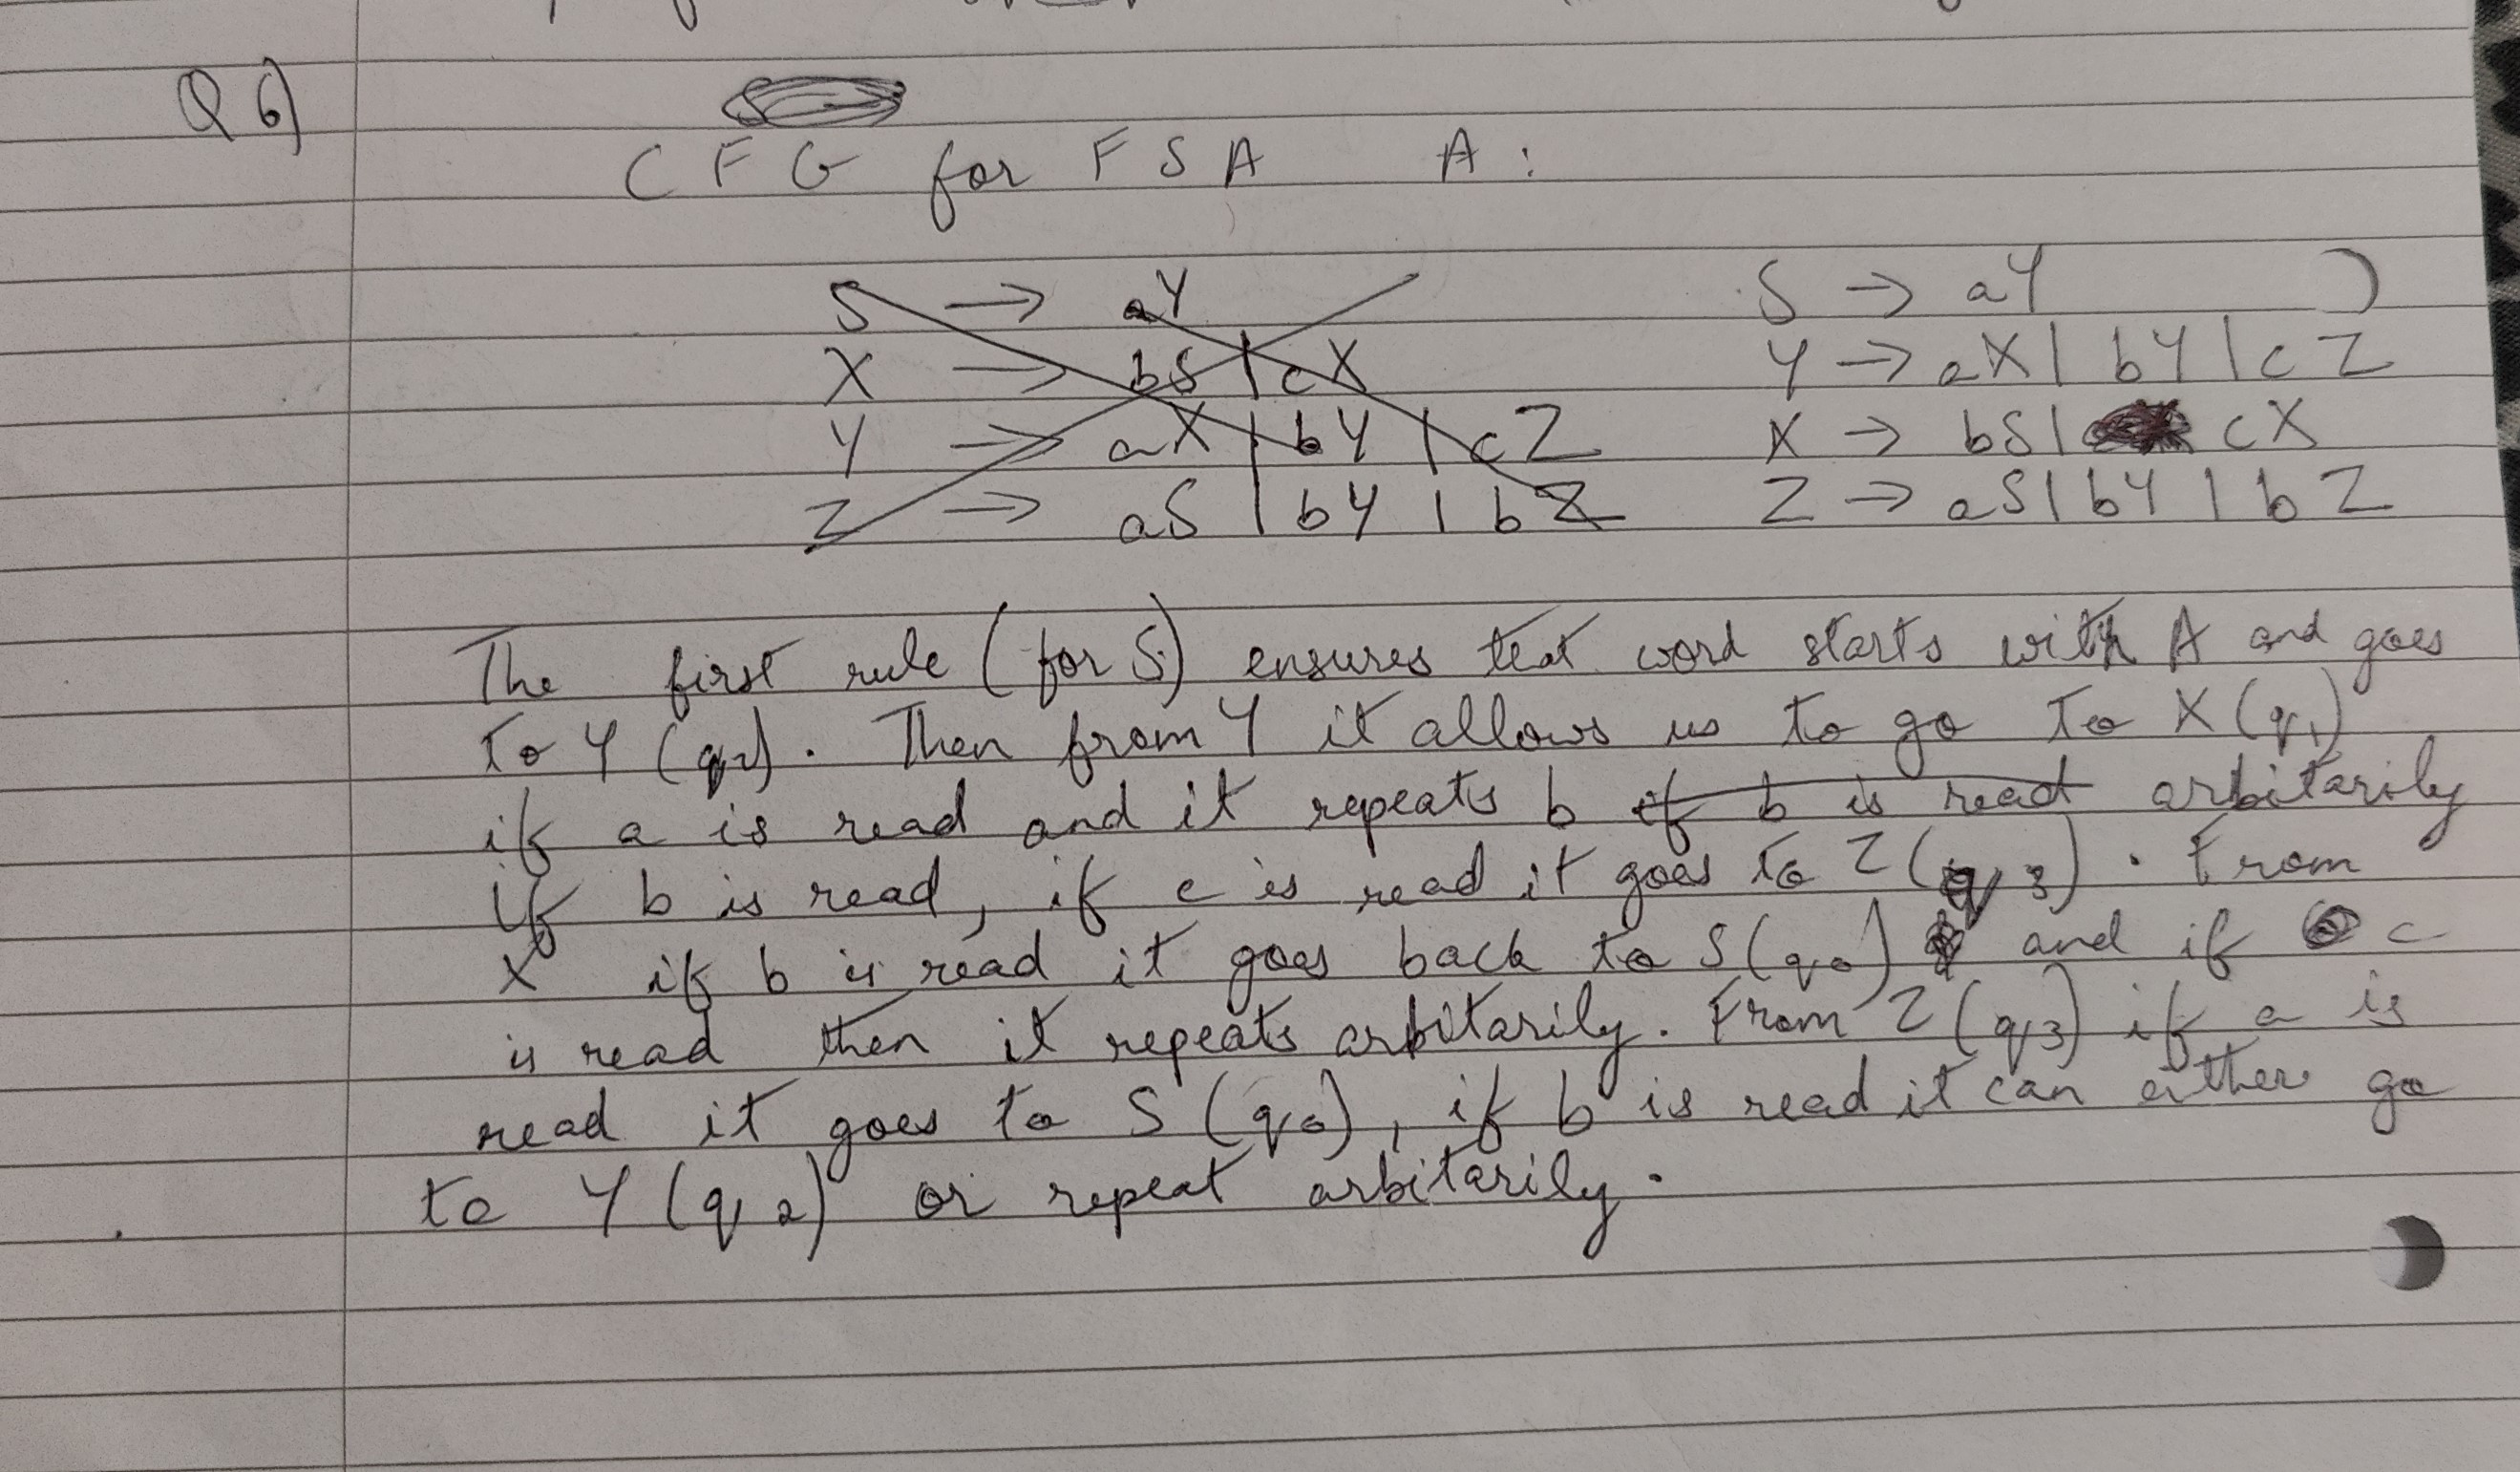 Q 6)
CFG for FSA A:
S → aY
X → bS | cX
Y → aX | bY | cZ
Z → aS | bY | bZ
S → aY
Y → aX | bY | cZ
X → bS | cX
Z → aS | bY | bZ
The first rule (for S) ensures that word starts with A and goes
to Y (q2). Then from Y it allows us to go to X (q1)
if a is read and it repeats b if b is read arbitarily
if b is read, if c is read it goes to Z (q3). From
X if b is read it goes back to S (q0) and if c
is read then it repeats arbitarily. From Z (q3) if a is
read it goes to S (q0), if b is read it can either go
to Y (q2) or repeat arbitarily.